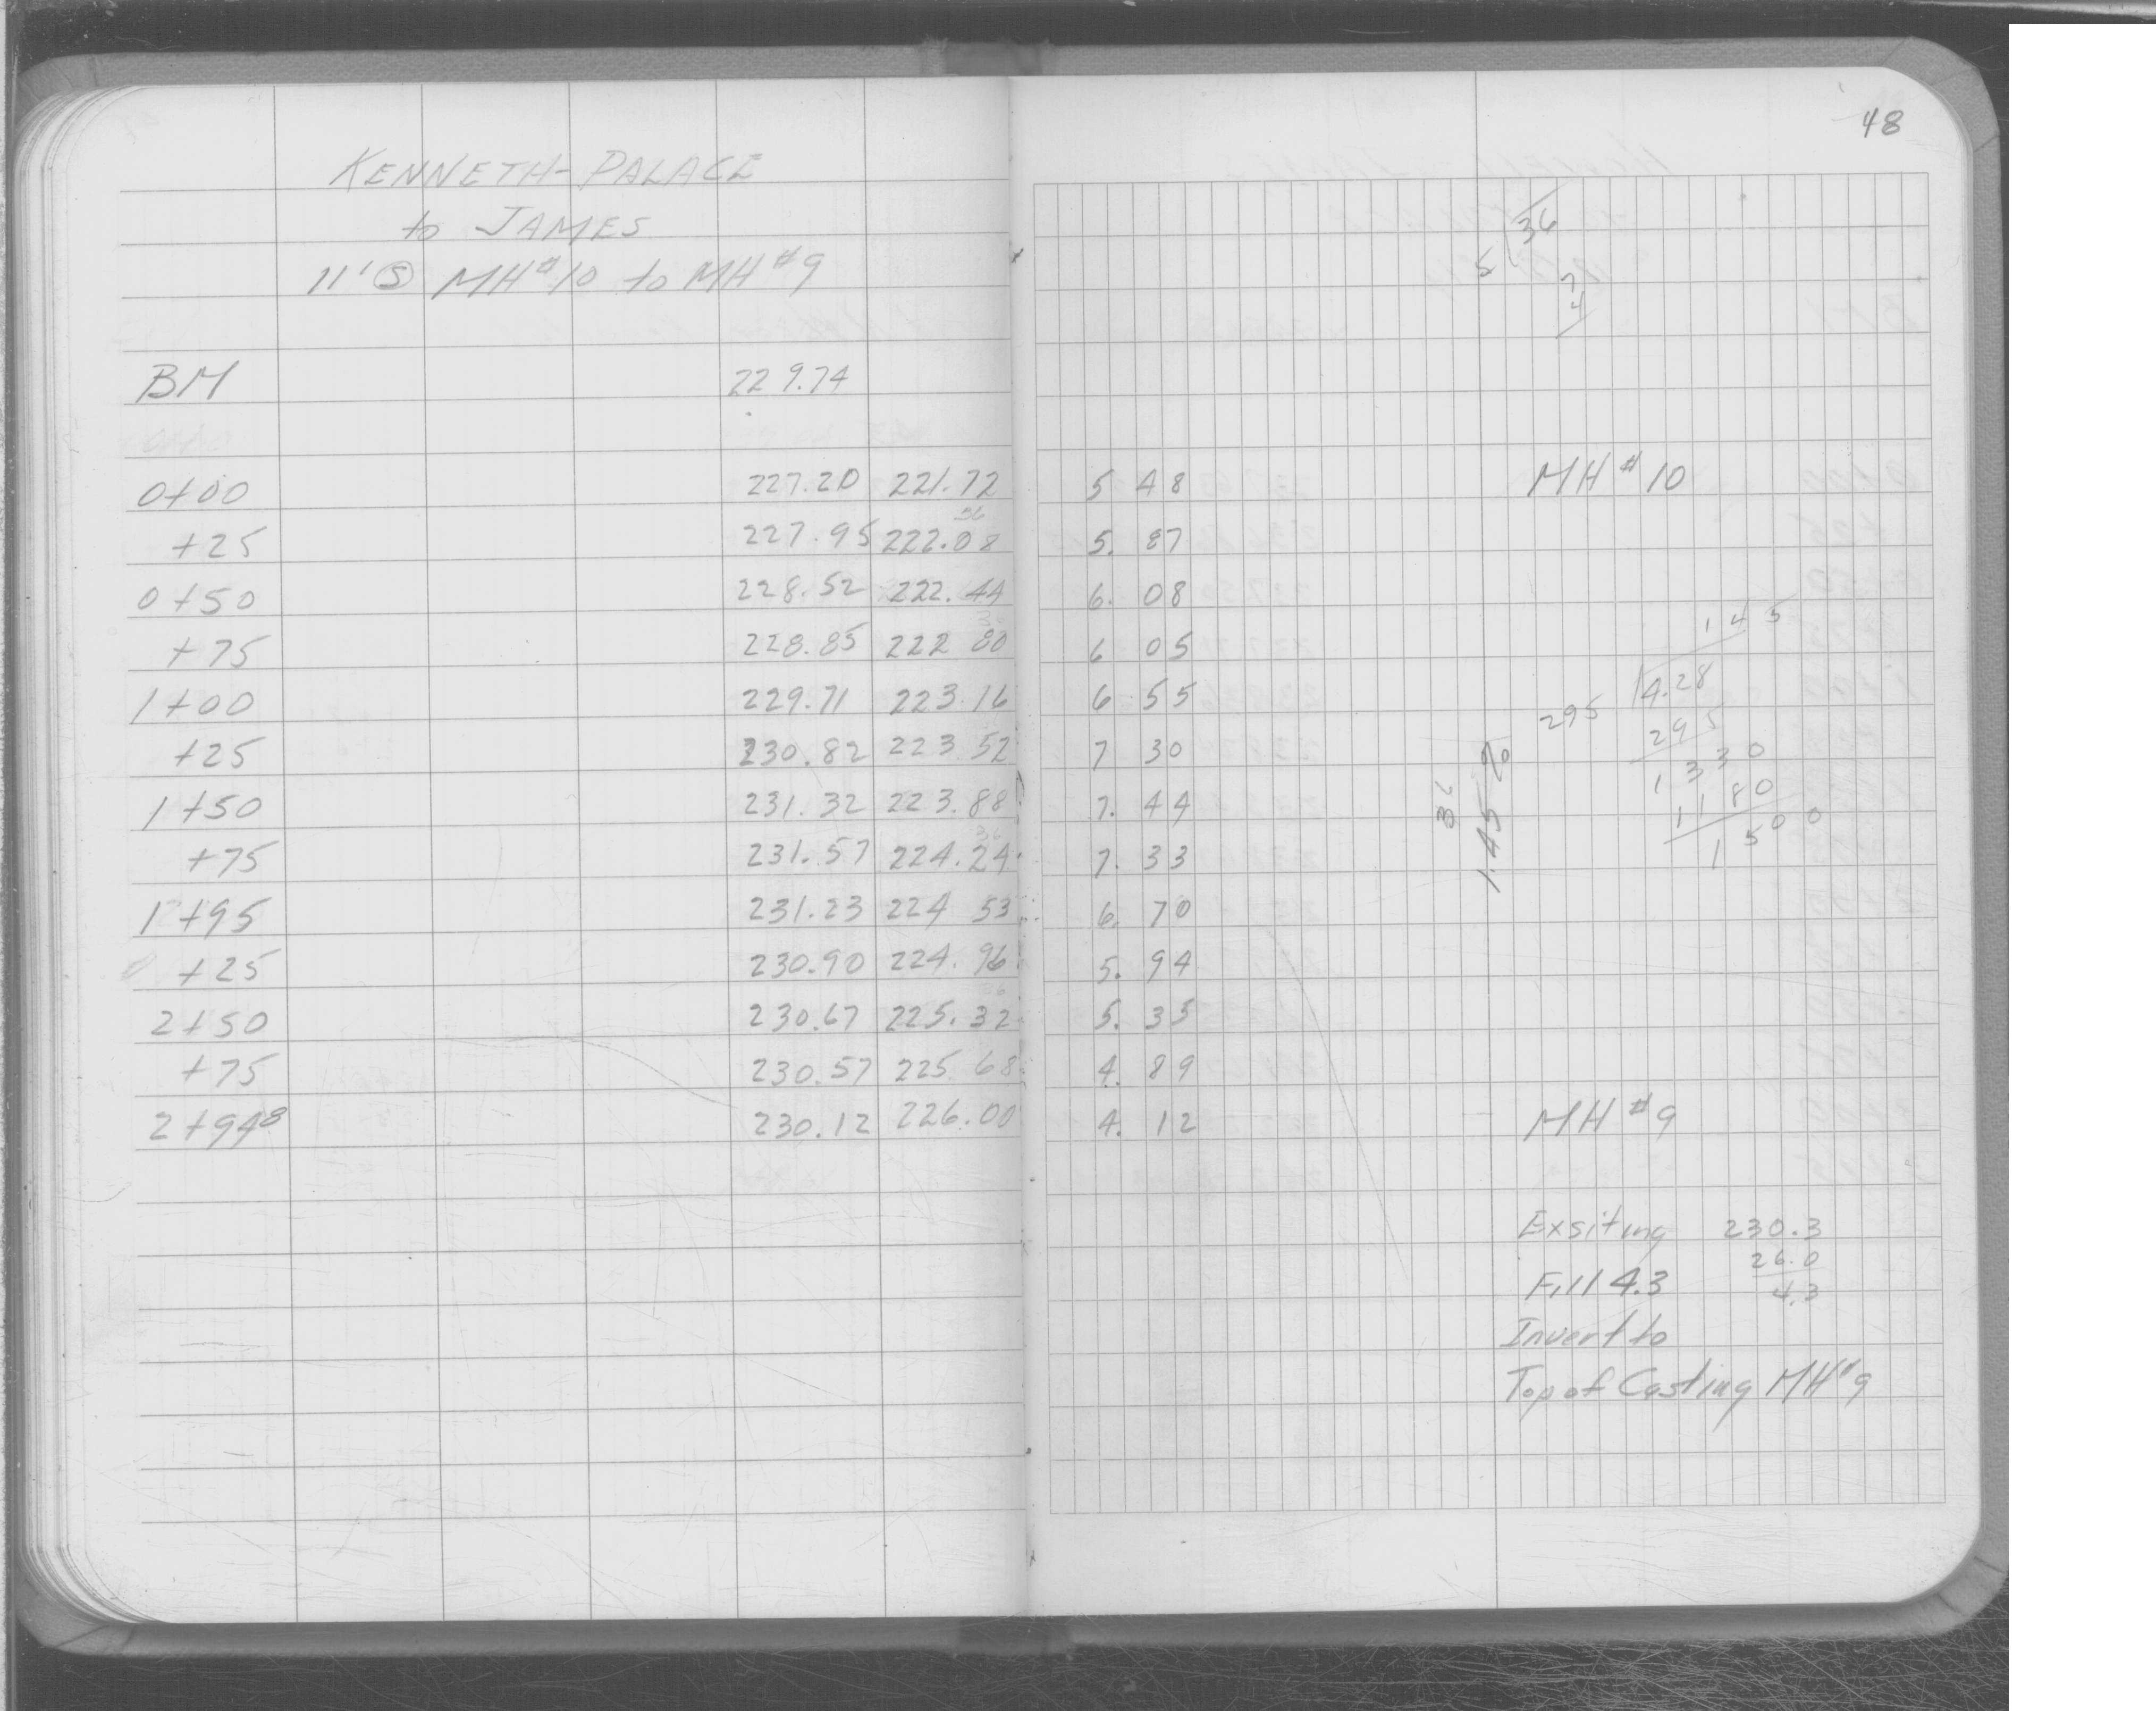 48
KENNETH-PALACE
to JAMES
11' S MH#10 to MH#9
36
5
7
4
BM 229.74
0+00 227.20 221.72 5.48 MH#10
36
+25 227.95 222.08 5.87
0+50 228.52 222.44 6.08
+75 228.85 222 80 6 05
1+00 229.71 223.16 6 55
+25 230.82 223 52 7 30
1+50 231.32 223.88 7.44
36
+75 231.57 224.24 7.33
1+95 231.23 224 53 6.70
+25 230.90 224.96 5.94
36
2+50 230.67 225.32 5.35
+75 230.57 225 68 4.89
2+948 230.12 226.00 4.12 MH#9
145
295 4.28
295
1330
1180
1500
36
1.45%
Exsiting 230.3
26.0
Fill 4.3 4.3
Invert to
Top of Casting MH#9